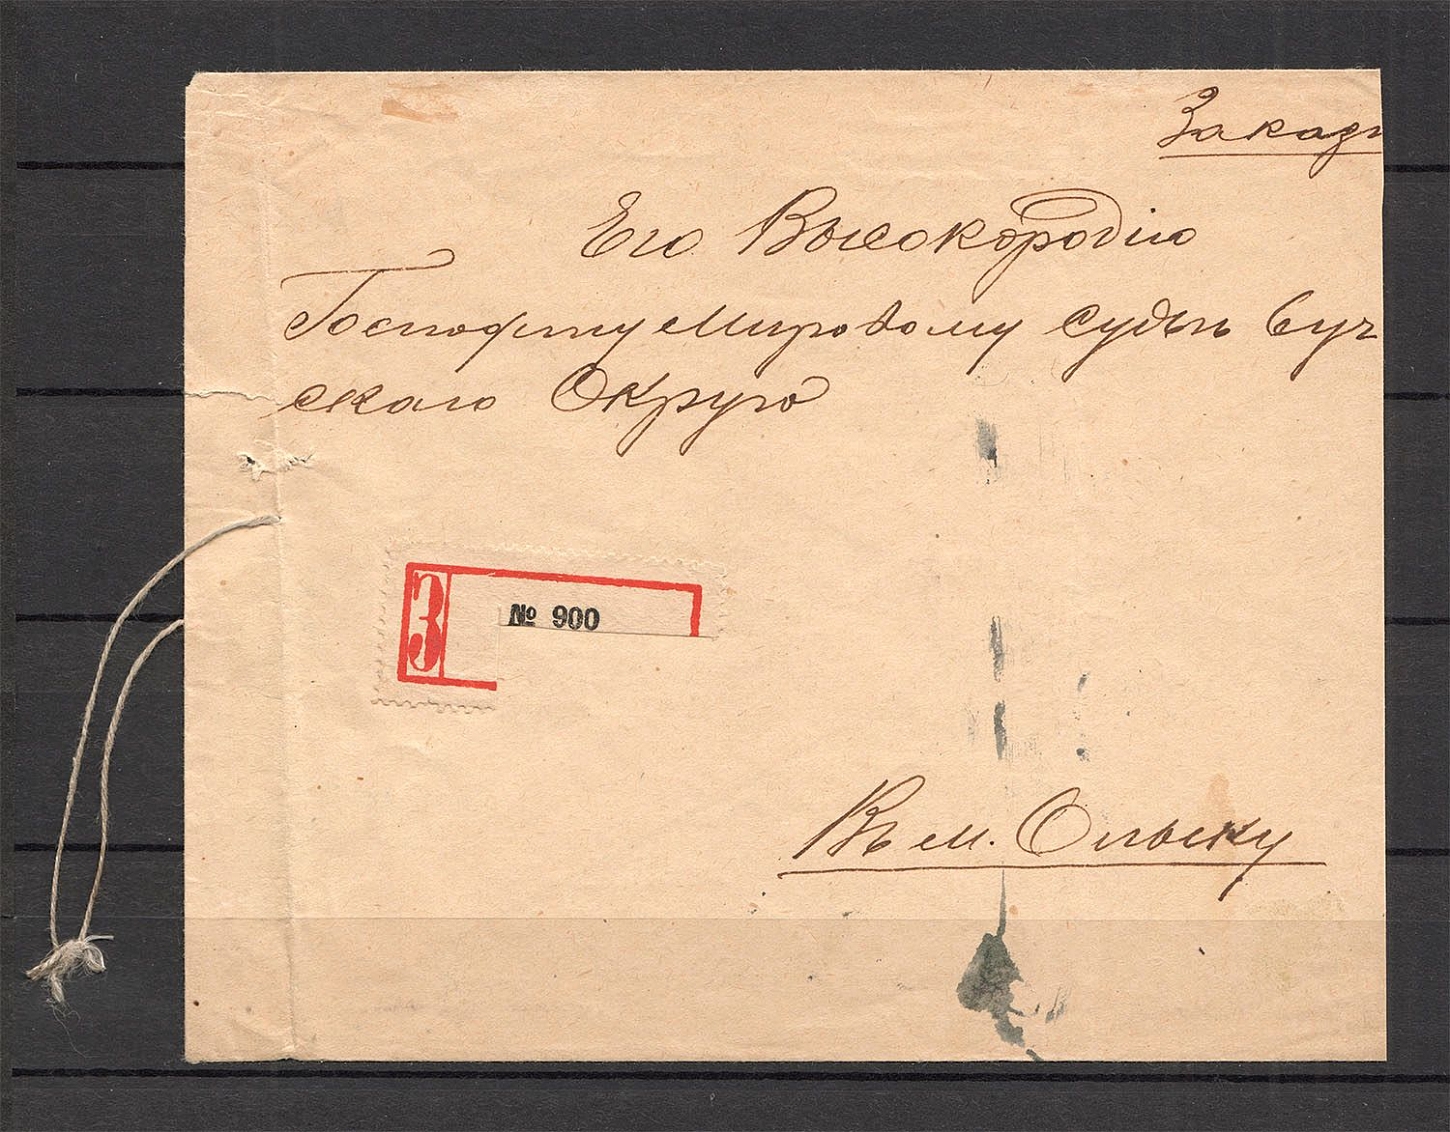 Заказн
Его Высокородію
Господину Мировому Судьѣ Луч
скаго Округа
З № 900
Въ м. Олыку